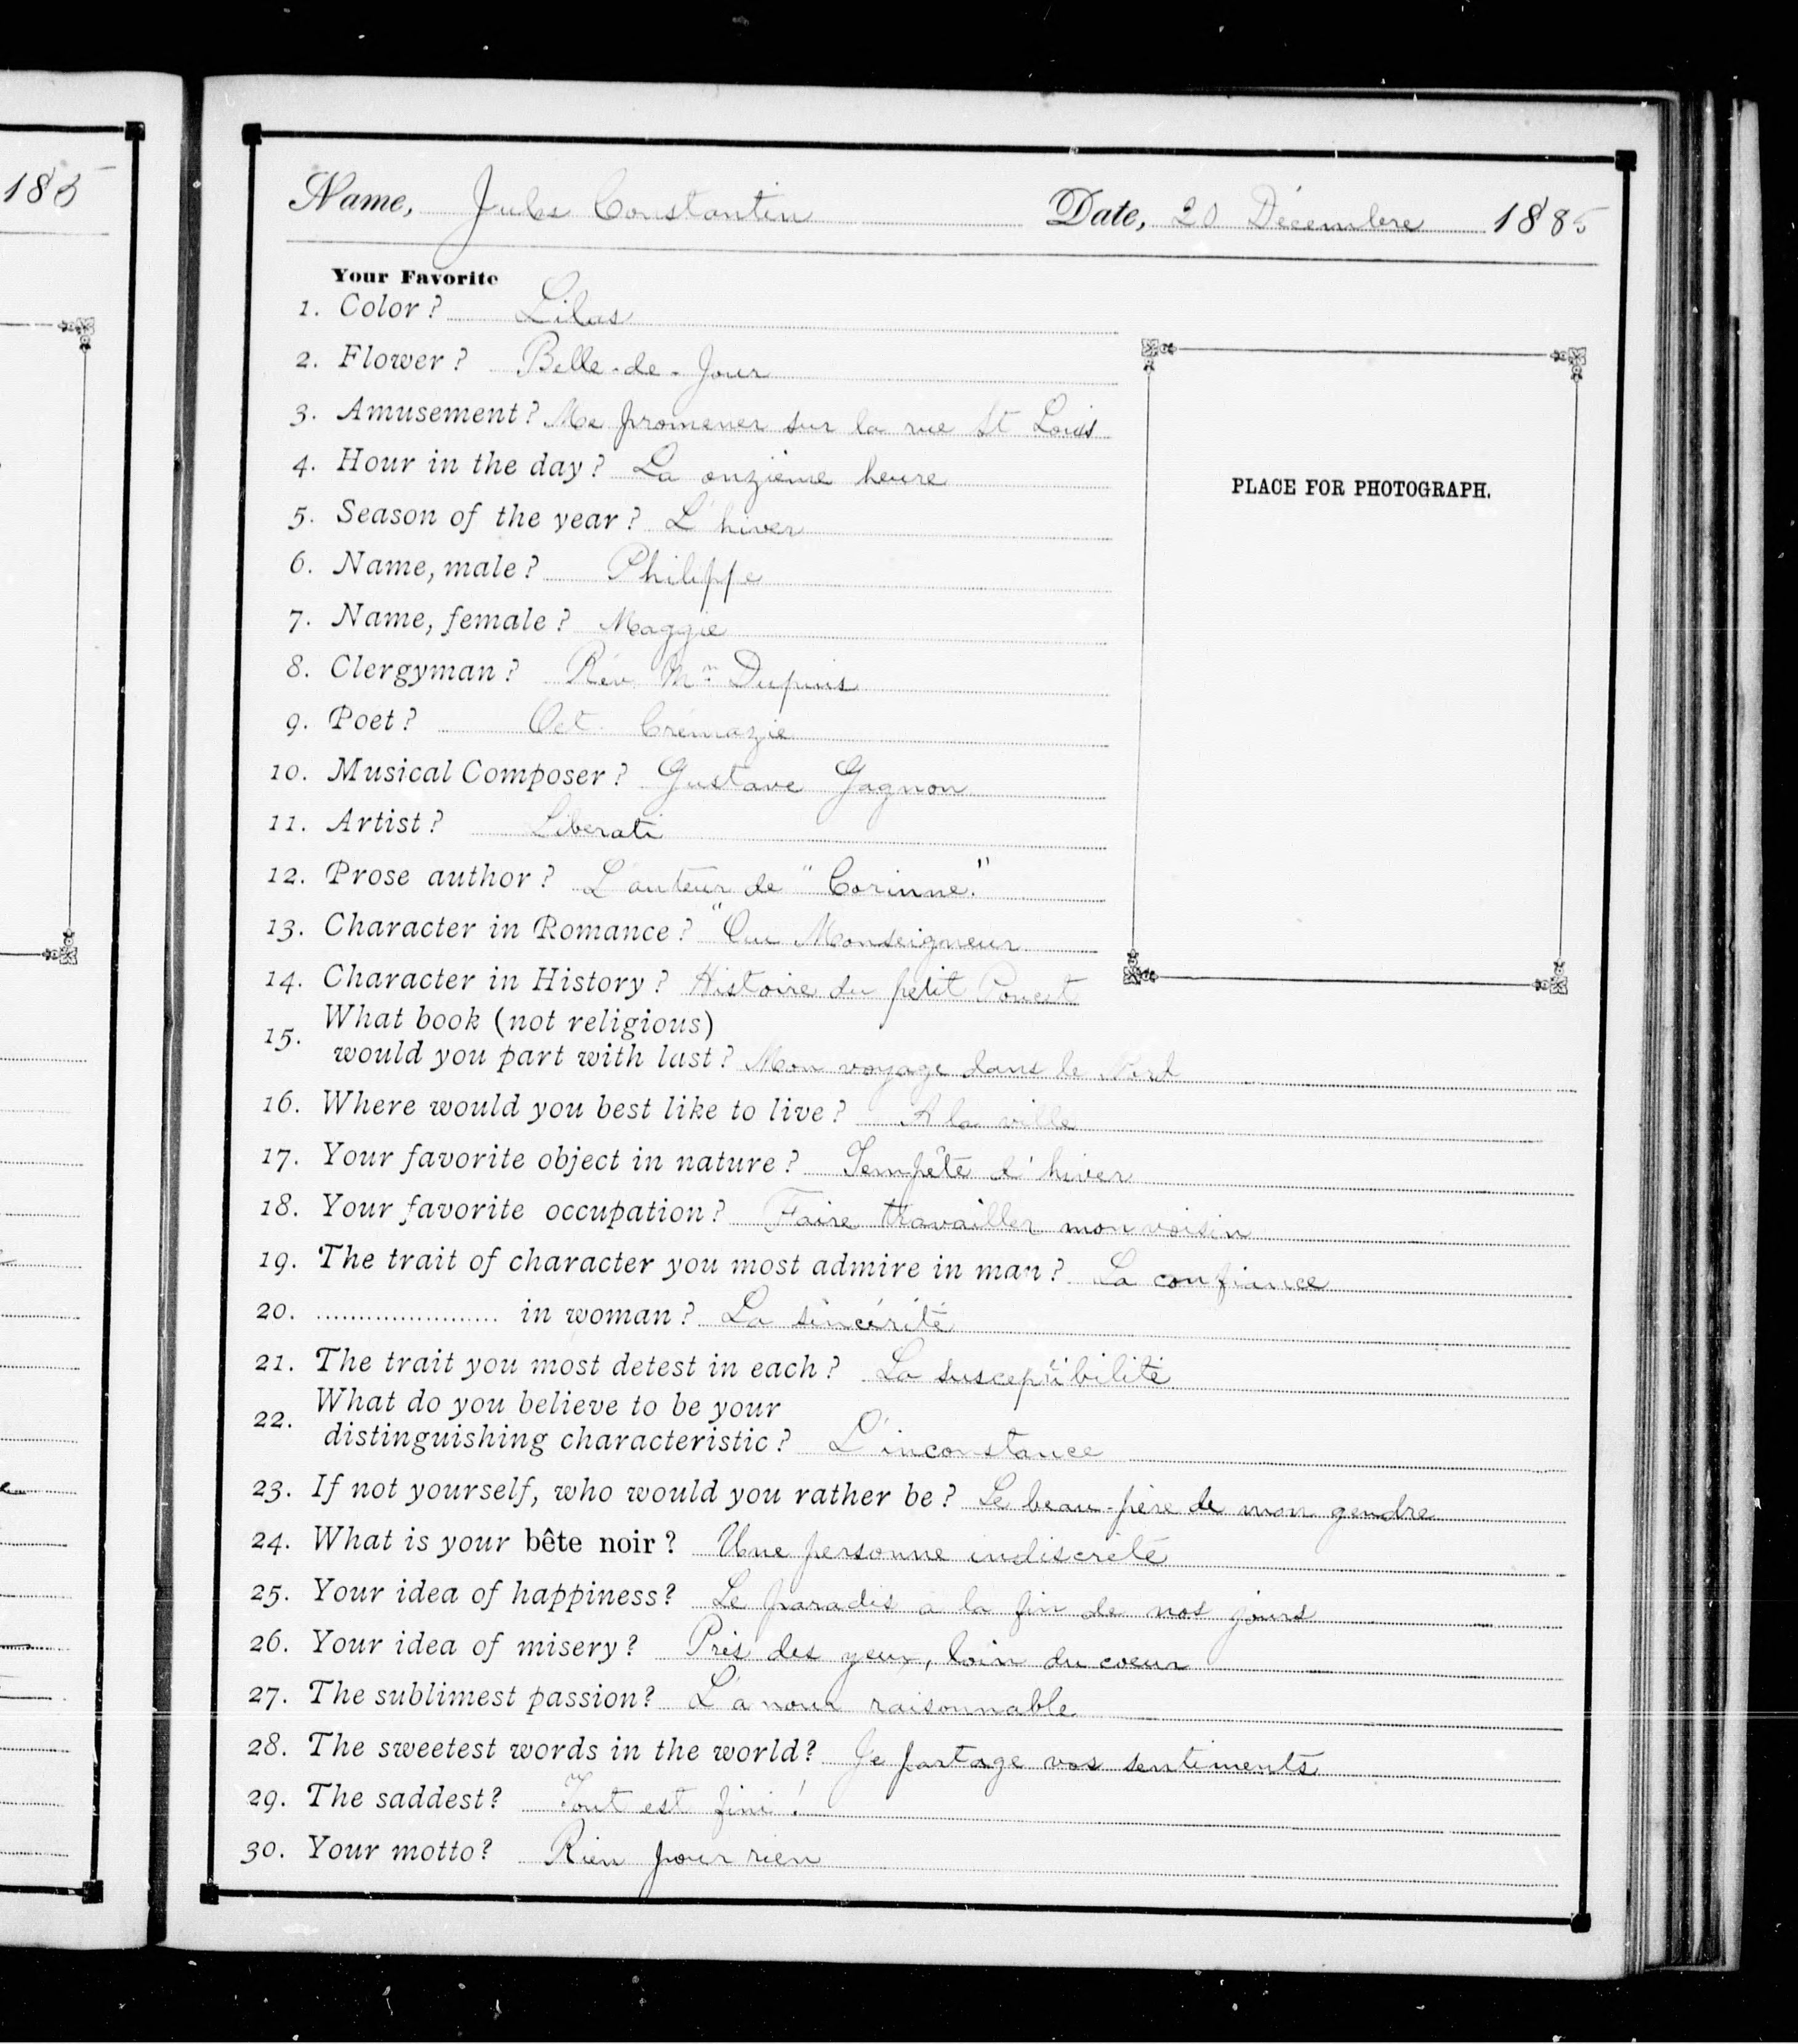 185
Name, Jules Constantin Date, 20 Décembre 1885
Your Favorite
1. Color? Lilas
2. Flower? Belle-de-Jour
3. Amusement? Me promener sur la rue St Louis
4. Hour in the day? La onzième heure
5. Season of the year? L'hiver
6. Name, male? Philippe
7. Name, female? Maggie
8. Clergyman? Rév. Mr Dupuis
9. Poet? Oct. Crémazie
10. Musical Composer? Gustave Gagnon
11. Artist? Liberati
12. Prose author? L'auteur de "Corinne."
13. Character in Romance? "Oui Monseigneur
14. Character in History? Histoire du petit Poucet
PLACE FOR PHOTOGRAPH.
15. What book (not religious)
would you part with last? Mon voyage dans le Nord
16. Where would you best like to live? A la ville
17. Your favorite object in nature? Tempête d'hiver
18. Your favorite occupation? Faire travailler mon voisin
19. The trait of character you most admire in man? La confiance
20. ...................... in woman? La sincérité
21. The trait you most detest in each? La susceptibilité
22. What do you believe to be your
distinguishing characteristic? L'inconstance
23. If not yourself, who would you rather be? Le beau-père de mon gendre
24. What is your bête noir? Une personne indiscrète
25. Your idea of happiness? Le paradis à la fin de nos jours
26. Your idea of misery? Près des yeux, loin du coeur
27. The sublimest passion? L'amour raisonnable
28. The sweetest words in the world? Je partage vos sentiments
29. The saddest? Tout est fini!
30. Your motto? Rien pour rien